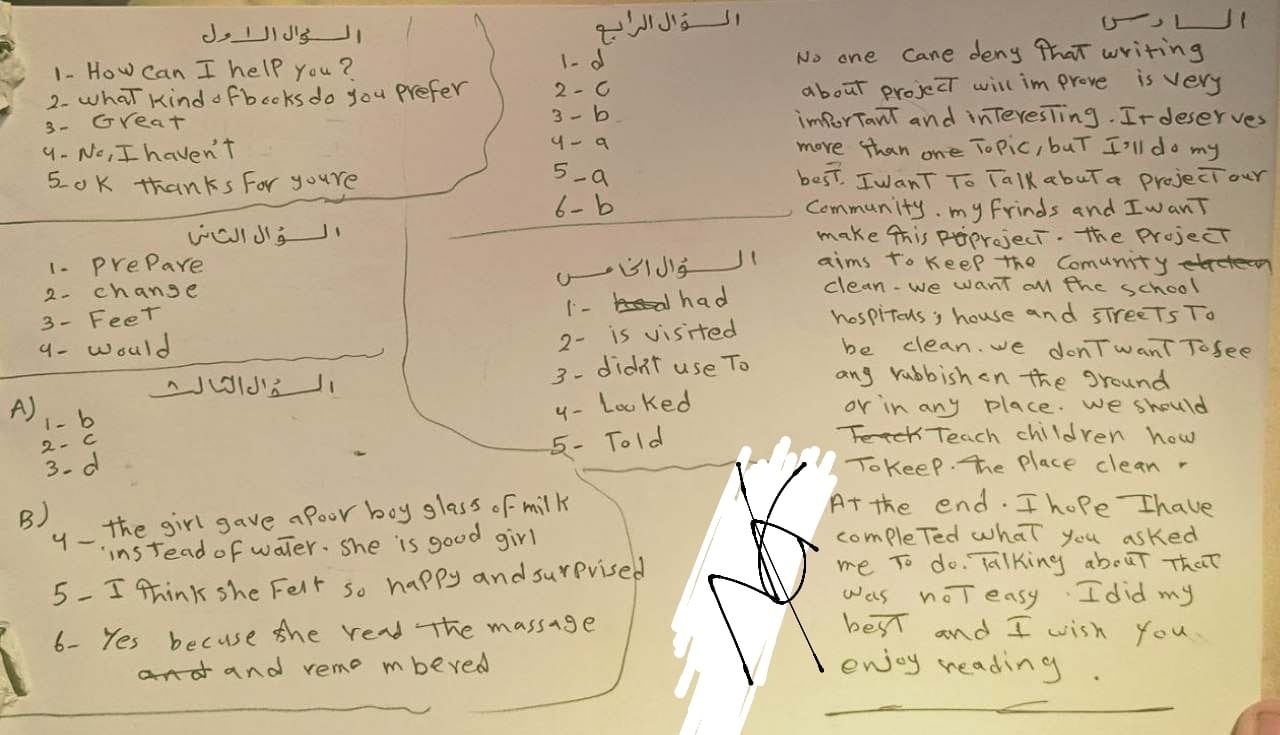 السؤال الاول
1- How can I help you?
2- what kind of books do you prefer
3- Great
4- No, I haven't
5- OK thanks for youre
السؤال الثاني
1- prepare
2- change
3- Feet
4- would
السؤال الثالث
A)
1- b
2- c
3- d
B)
4- the girl gave apoor boy glass of milk
instead of water. she is good girl
5- I think she Felt so happy and surprised
6- Yes becuse she read the massage
and and reme mbered
السؤال الرابع
1- d
2- c
3- b
4- a
5- a
6- b
السؤال الخامس
1- had had
2- is visited
3- didn't use To
4- Looked
5- Told
السادس
No one cane deny that writing
about project will im prove is very
important and interesting. It deserves
more than one Topic, but I'll do my
best. I want To Talk abut a project our
Community. my frinds and I want
make this project. the project
aims to keep the Comunity
clean - we want all the school
hospitals, house and streets To
be clean. we dont want To see
any rubbish on the ground
or in any place. we should
Teach Teach children how
To keep. the place clean.
At the end. I hope I have
completed what you asked
me To do. Talking about That
was not easy. I did my
best and I wish you
enjoy reading.